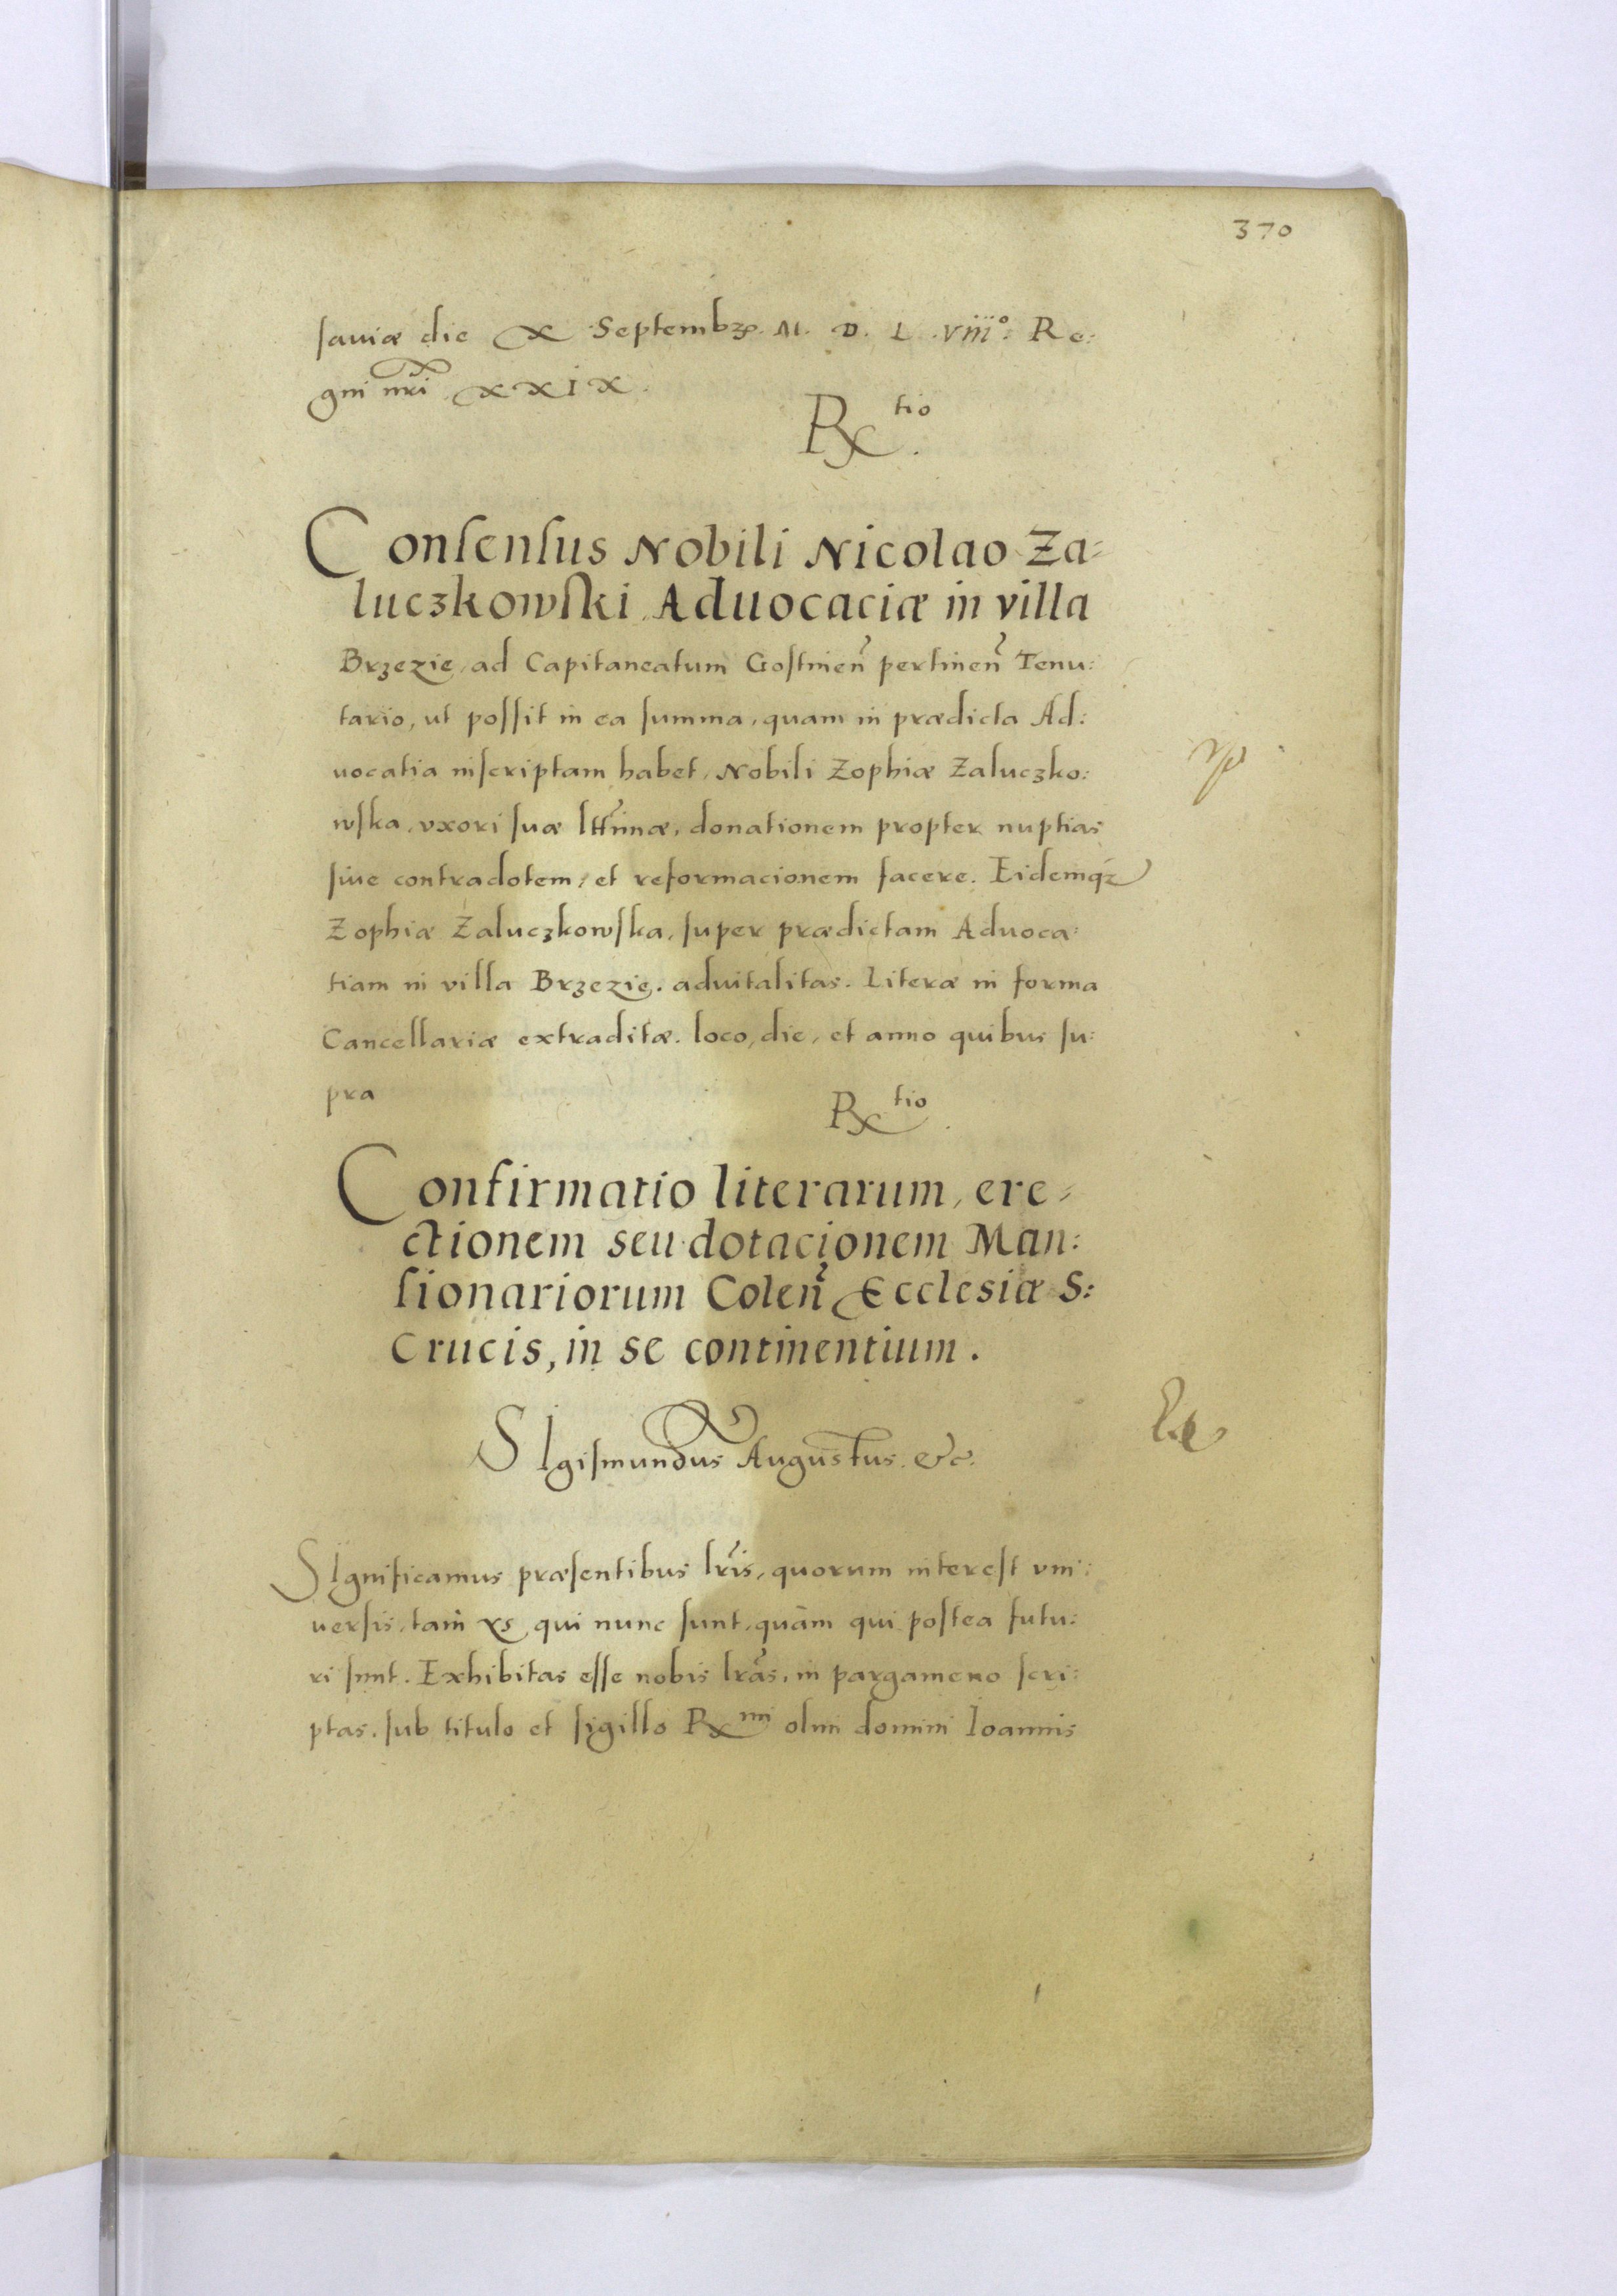 370
ſauiæ die X Septembꝫ. M. D. L. viii°: Re:
gni nri XXIX.
Rx tio.
Conſenſus Nobili Nicolao Za=
luczkowſki Aduocaciæ in villa
Brzezie, ad Capitaneatum Goſtinen̄ pertinen̄ Tenu:
tario, ut poſſit in ea ſumma, quam in prædicta Ad:
uocatia inſcriptam habet, Nobili Zophiæ Zaluczko:
wſka, vxori ſuæ lttīmæ, donationem propter nuptias
ſiue contradotem, et reformacionem facere. Eidemqꝫ
Zophiæ Zaluczkowſka, ſuper prædictam Aduoca:
tiam in villa Brzezie. aduitalitas. Literæ in forma
Cancellariæ extraditæ. loco, die, et anno quibus ſu:
pra
Rx tio.
Confirmatio literarum, ere=
ctionem seu dotacionem Man:
ſionariorum Colen̄ Ecclesiæ S:
Crucis, in se continentium.
SIgiſmundus Augustus. &c.
SIgnificamus præſentibus lrīs, quorum intereſt vni:
uerſis, tam xs qui nunc ſunt, quàm qui poſtea futu:
ri ſunt. Exhibitas eſſe nobis lrās, in pargameno ſcri:
ptas, ſub titulo et ſigillo Rx mi olim domini Ioannis